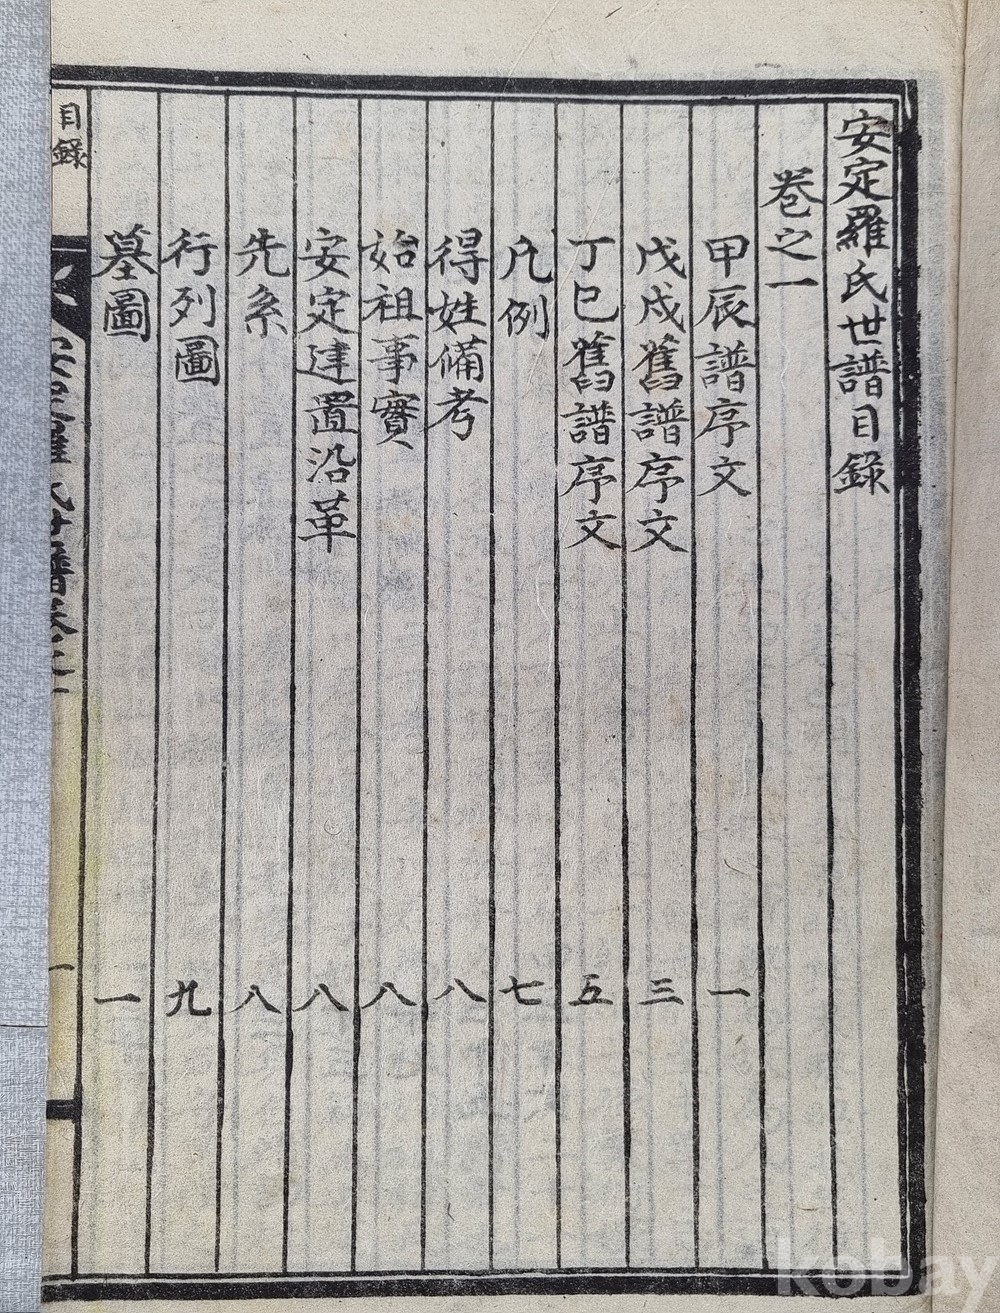 安定羅氏世譜目錄
卷之一
甲辰譜序文 一
戊戌舊譜序文 三
丁巳舊譜序文 五
凡例 七
得姓備考 八
始祖事實 八
安定建置沿革 八
先系 八
行列圖 九
墓圖 一
目錄
安定羅氏世譜卷之一
一
kobay